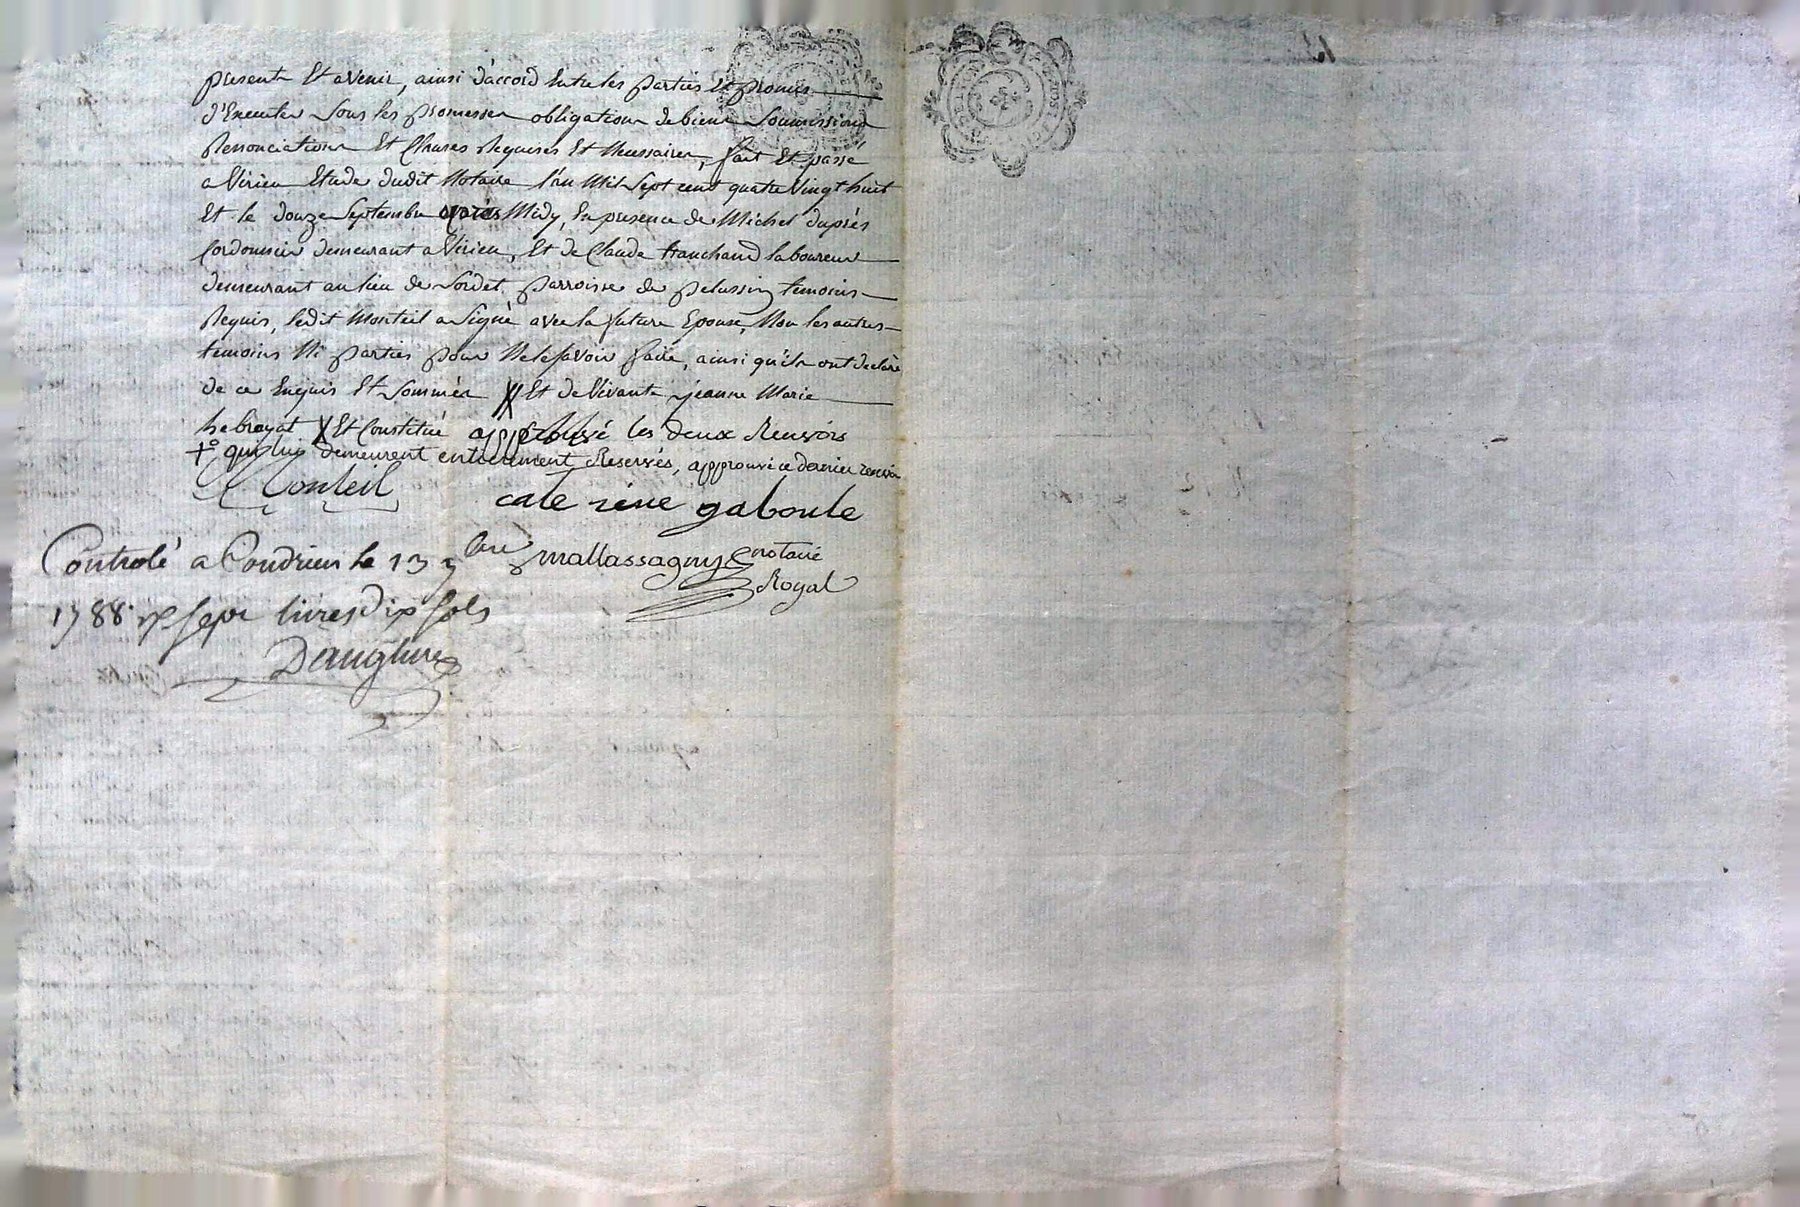 presents Et avenir, ainsi d'accord Entre les parties Et promis
d'Executer sous les promesses obligations de biens soumissions
Renonciations Et Clauses Requises Et Necessaires, fait Et passé
a Virieu Etude dudit Notaire l'an Mil Sept cent quatre Vingt huit
Et le douze Septembre après Midy, En presence de Michel duprés
Cordonnier demeurant a Virieu, Et de Claude laboureur
demeurant au lieu de Sordet parroisse de pelussin temoins
Requis, ledit Monteil a signé avec la future Epouse, Non les autres
temoins Ni parties pour Ne le savoir faire, ainsi qu'ils ont declaré
de ce Enquis Et sommés X Et de Vivante jeanne Marie
X Et Constitué approuvé les deux Renvois
+° qui lui demeurent entierement Reservés, approuvé ce dernier renvoi
Monteil
caterine gaboule
mallassagny notaire
Royal
Controlé a Condrieu le 13 7bre
1788 Rs sept livres dix sols